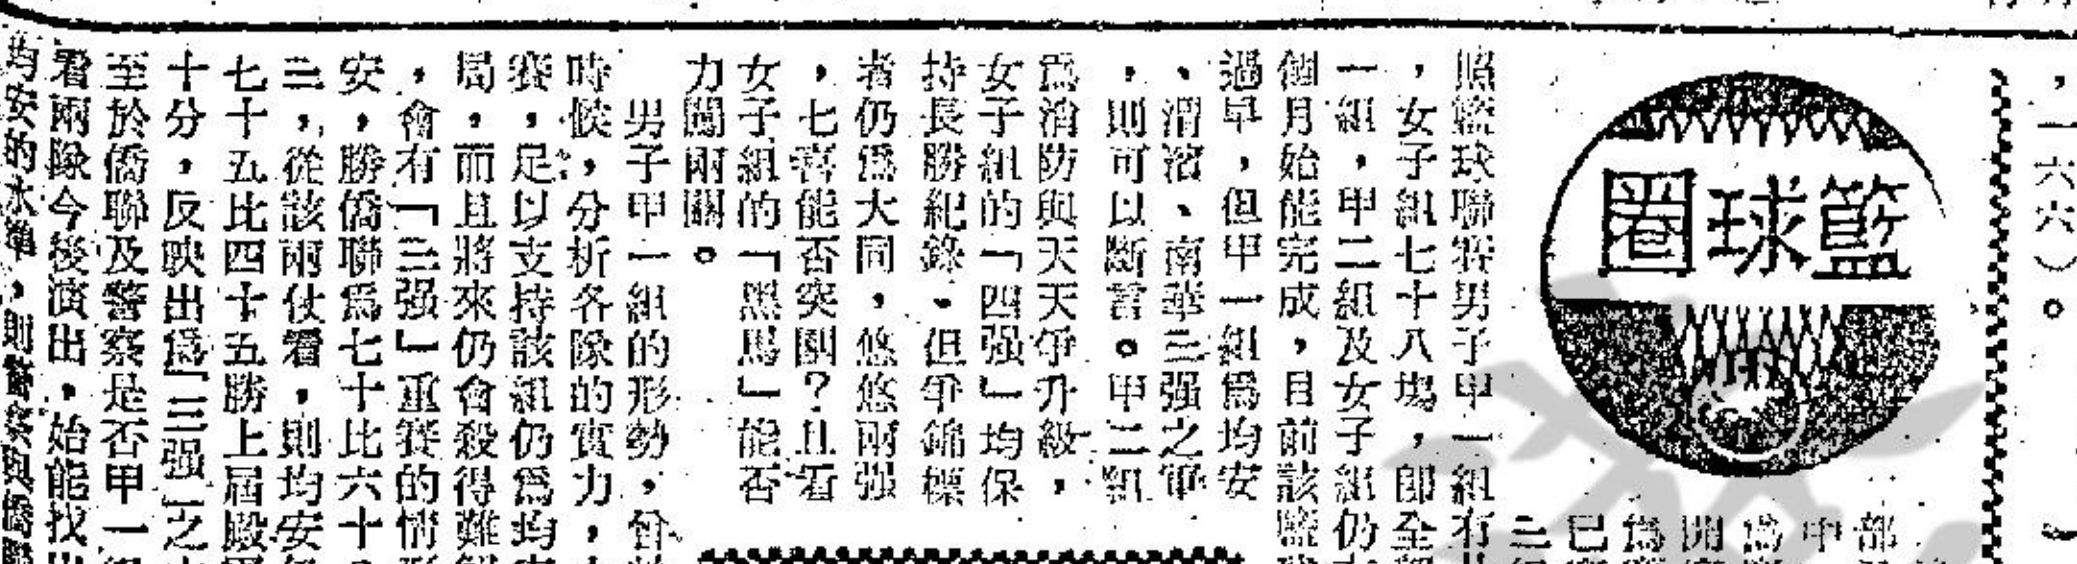 ，一六六）。
籃球圈
部
甲
爲
開
爲
已
三
照籃球聯賽男子甲一組有
，女子組七十八塲，即全
一組，甲二組及女子組仍
個月始能完成，目前該籃球
過早，但甲一組爲均安
、渭濱、南華三强之軍
，則可以斷言。甲二組
爲消防與天天爭升級，
女子組的「四强」均保
持長勝紀錄。但爭錦標
者仍爲大同，悠悠兩强
，七喜能否突圍？且看
女子組的「黑馬」能否
力闖兩關。
男子甲一組的形勢，曾
時候，分析各隊的實力，
賽，足以支持該組仍爲均安
局，而且將來仍會殺得難解
，會有「三强」重賽的情形
安，勝僑聯爲七十比六十
三，從該兩仗看，則均安
七十五比四十五勝上屆殿軍
十分，反映出爲「三强」之
至於僑聯及警察是否甲一組
看兩隊今後演出，始能找出
均安的水準，則警察與僑聯